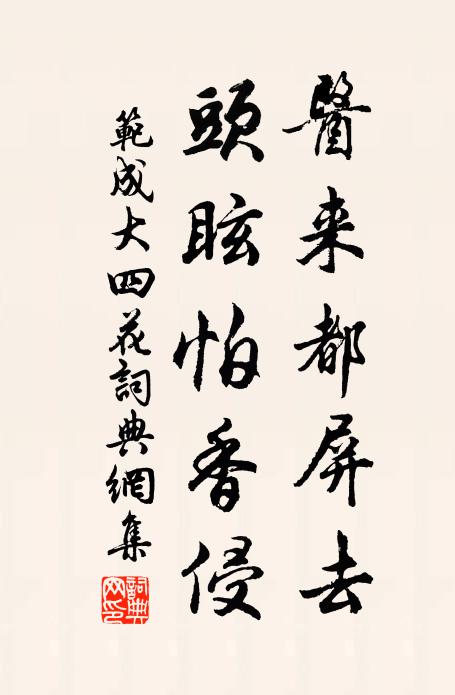 醫来都屏去
頭眩怕香侵
範成大四花詞典網集
詞典
网印